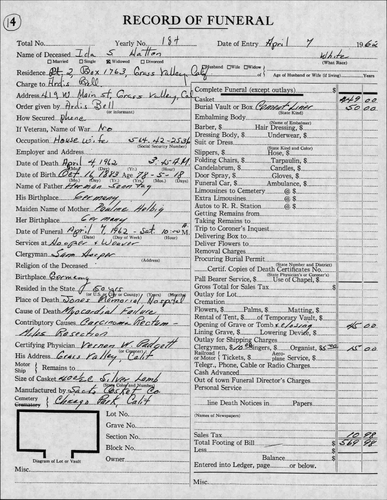 14
RECORD OF FUNERAL
Total No. Yearly No. 184 Date of Entry April 7 1962
Name of Deceased Ida S Hatton White
(What Race)
Married Single Widowed Divorced Husband Wife Widow of
Residence Rt 2 Box 1763, Grass Valley, Calif Age of Husband or Wife (if living) Years
Charge to Ardis Bell
Address 419 W. Main St, Grass Valley, Cal
Order given by Ardis Bell
(or informant)
How Secured phone
If Veteran, Name of War No
Occupation House wife 564-42-2536
Employer and Address
Date of Death April 4, 1962 3:45 A.M.
Date of Birth Oct 16 1883 Age 78-5-18
Name of Father Herman
His Birthplace Germany
Maiden Name of Mother Pauline Helbig
Her Birthplace Germany
Date of Funeral April 7 1962 - Sat 10 A.M.
Services at Hooper & Weaver
Clergyman Sam
Religion of the Deceased
Birthplace Germany
Resided in the State 60 yrs
Place of Death Jones Memorial Hospital
Cause of Death Myocardial Failure
Contributory Causes Carcinoma Rectum -
Resection
Certifying Physician Vernon W. Padgett
His Address Grass Valley, Calif
Motor Ship Remains to
Size of Casket Silver Lamb
Manufactured by Casket Co
Cemetery Chicago Park, Calif
Lot No.
Grave No.
Section No.
Block No.
Owner
Diagram of Lot or Vault
Misc.
Complete Funeral (except outlays) $
Casket 449 00
Burial Vault or Box Cement Liner 50 00
(State Kind)
Embalming Body
(Name of Embalmer)
Barber, $ Hair Dressing, $
Dressing Body, $ Underwear, $
Suit or Dress
(State Kind and Color)
Slippers, $ Hose, $
Folding Chairs, $ Tarpaulin, $
Candelabrum, $ Candles, $
Door Spray, $ Gloves, $
Funeral Car, $ Ambulance, $
Limousines to Cemetery @ $
Extra Limousines @ $
Autos to R. R. Station @ $
Getting Remains from
Taking Remains to
Trip to Coroner's Inquest
Delivering Box to
Deliver Flowers to
Removal Charges
Procuring Burial Permit
(State Number and District)
Certif. Copies of Death Certificates No.
(State Physician's or Coroner's)
Pall Bearer Service, $ Use of Chapel, $
Gross Total for Sales Tax $
Outlay for Lot
Cremation
Flowers, $ Palms, $ Matting, $
Rental of Tent, $ of Temporary Vault, $
Opening of Grave or Tomb closing 45 00
Lining Grave, $ Lowering Device, $
Outlay for Shipping Charges
Clergymen, $10.00 Singers, $ Organist, $5.00 15 00
Railroad or Motor Tickets, $ Aeroplane Service, $
Telegr., Phone, Cable or Radio Charges
Cash Advanced
Out of town Funeral Director's Charges
Personal Service
line Death Notices in Papers
(Names of Newspapers)
Sales Tax 10 98
Total Footing of Bill $ 569 98
Less
Balance $
Entered into Ledger, page or below.
Misc.